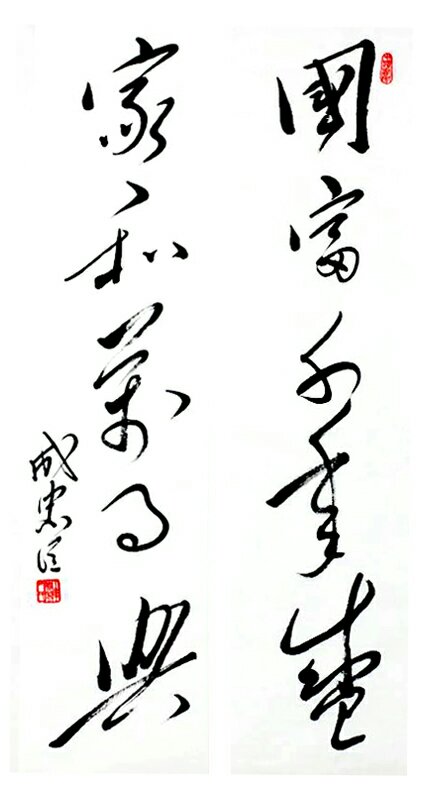 國富千年盛
家和萬事興
成忠臣